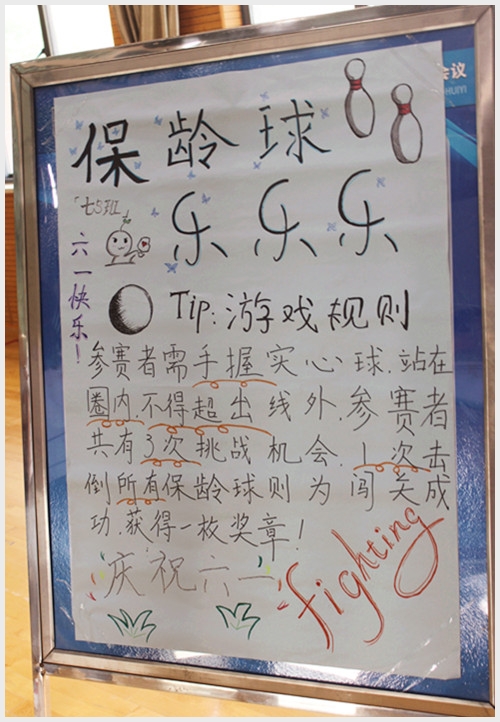 会议
HUIYI
保龄球
七5班
乐乐乐
六一快乐！
Tip:游戏规则
参赛者需手握实心球.站在
圈内.不得超出线外.参赛者
共有3次挑战机会.1次击
倒所有保龄球则为闯关成
功.获得一枚奖章！
庆祝六一
fighting